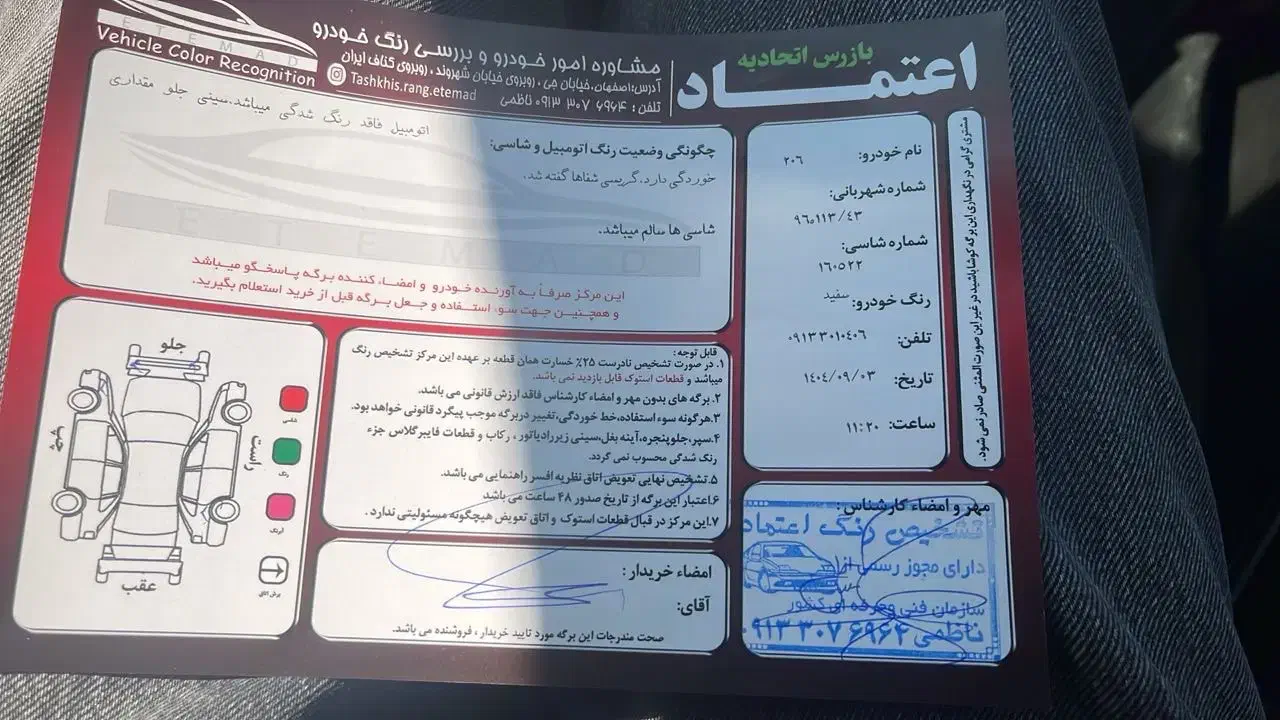 اعتماد
بازرس اتحادیه
مشاوره امور خودرو و بررسی رنگ خودرو
آدرس:اصفهان،خیابان جی، روبروی خیابان شهروند، روبروی کناف ایران
تلفن : ۰۹۱۳ ۳۰۷ ۶۹۶۴ ناظمی
Tashkhis.rang.etemad
ETEMAD
Vehicle Color Recognition
مشتری گرامی در نگهداری این برگه کوشا باشید در غیر این صورت المثنی صادر نمی شود.
نام خودرو: ۲۰۶
شماره شهربانی:
۹۶۵۱۱۳/۴۳
شماره شاسی:
۱۶۰۵۲۲
رنگ خودرو: سفید
تلفن: ۰۹۱۳۳۰۱۰۴۰۶
تاریخ: ۱۴۰۴/۰۹/۰۳
ساعت: ۱۱:۲۰
چگونگی وضعیت رنگ اتومبیل و شاسی:
اتومبیل فاقد رنگ شدگی میباشد.سینی جلو مقداری
خوردگی دارد.گریسی شفاها گفته شد.
شاسی ها سالم میباشد.
ETEMAD
این مرکز صرفاً به آورنده خودرو و امضاء کننده برگه پاسخگو میباشد
و همچنین جهت سوء استفاده و جعل برگه قبل از خرید استعلام بگیرید.
قابل توجه:
۱. در صورت تشخیص نادرست ۲۵٪ خسارت همان قطعه بر عهده این مرکز تشخیص رنگ
میباشد و قطعات استوک قابل بازدید نمی باشد.
۲. برگه های بدون مهر و امضاء کارشناس فاقد ارزش قانونی می باشد.
۳.هرگونه سوء استفاده،خط خوردگی،تغییر در برگه موجب پیگرد قانونی خواهد بود.
۴.سپر،جلوپنجره،آینه بغل،سینی زیررادیاتور ، رکاب و قطعات فایبرگلاس جزء
رنگ شدگی محسوب نمی گردد.
۵.تشخیص نهایی تعویض اتاق نظریه افسر راهنمایی می باشد.
۶.اعتبار این برگه از تاریخ صدور ۴۸ ساعت می باشد
۷.این مرکز در قبال قطعات استوک و اتاق تعویض هیچگونه مسئولیتی ندارد .
جلو
چپ
راست
عقب
شاسی
رنگ
برش اتاق
امضاء خریدار :
آقای:
صحت مندرجات این برگه مورد تایید خریدار ، فروشنده می باشد.
مهر و امضاء کارشناس :
تشخیص رنگ اعتماد
دارای مجوز رسمی از
سازمان فنی و حرفه ای کشور
ناظمی ۰۹۱۳ ۳۰۷ ۶۹۶۴